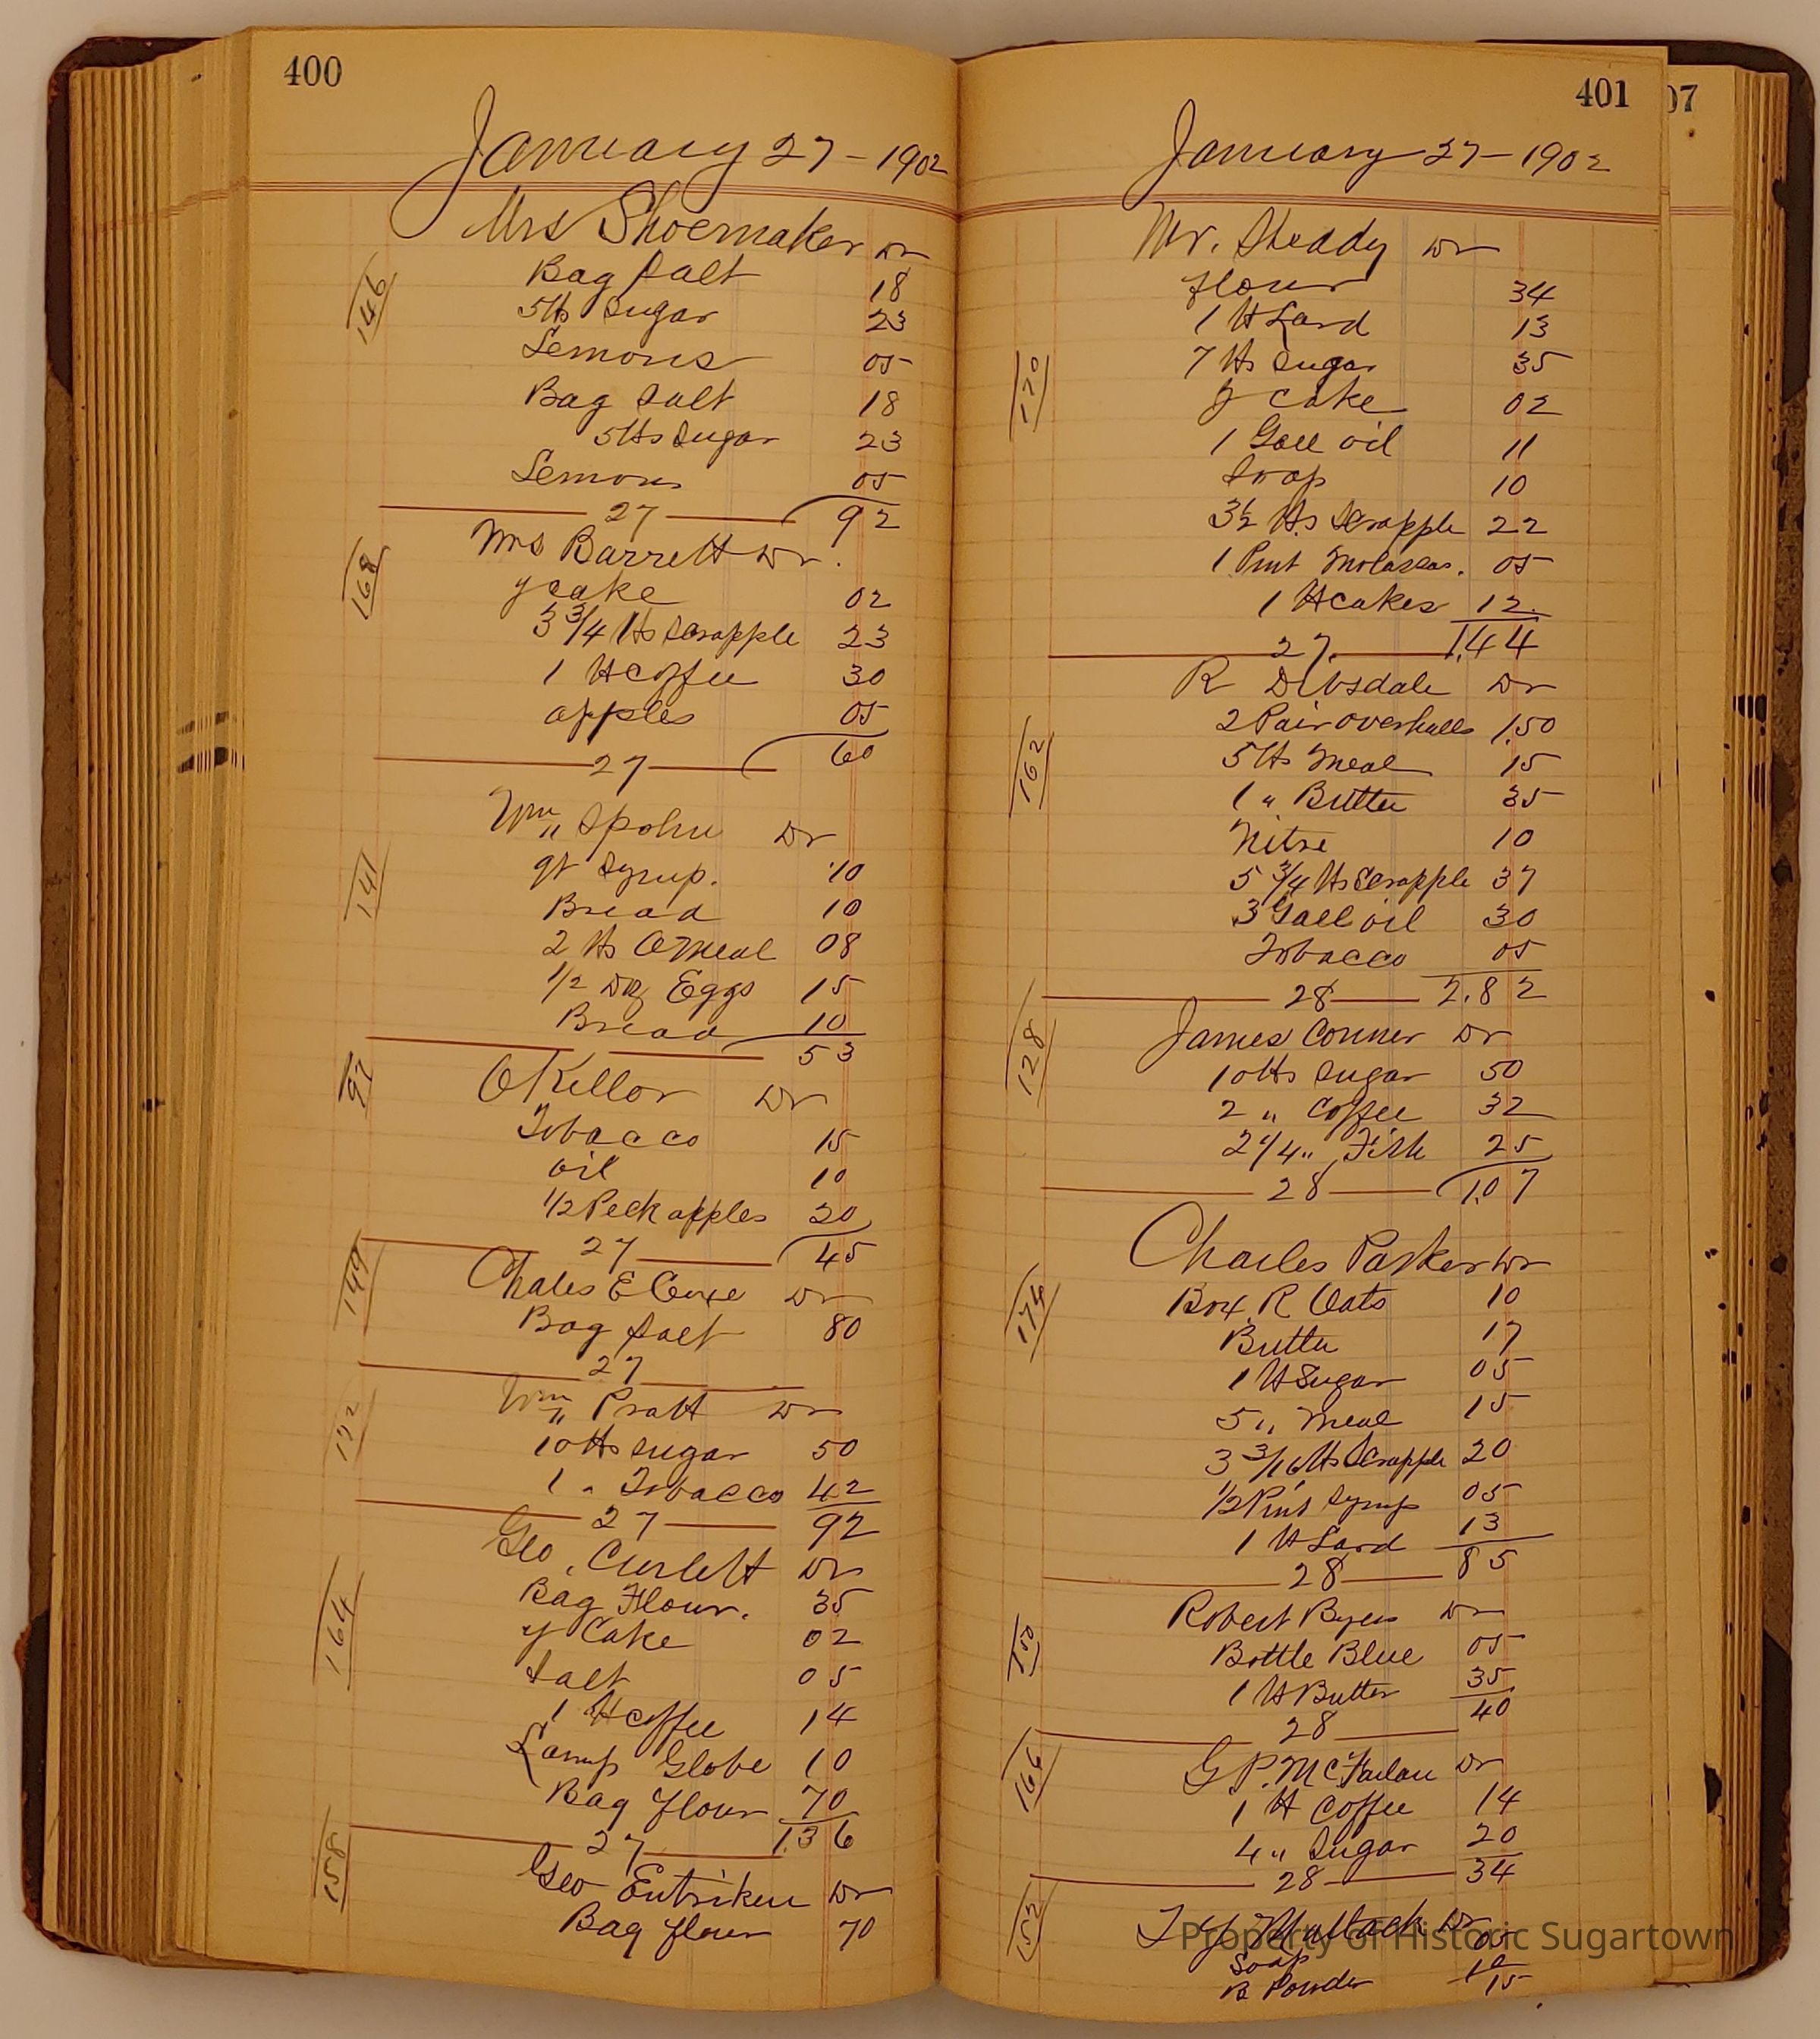 400
January 27 - 1902
Mrs Shoemaker Dr
146
Bag Salt 18
5 lbs Sugar 23
Lemons 05
Bag Salt 18
5 lbs Sugar 23
Lemons 05
27 92
168
Mrs Barrett Dr.
y cake 02
3 3/4 lbs Scrapple 23
1 lb coffee 30
apples 05
27 60
141
Wm Spohn Dr
qt Syrup. 10
Bread 10
2 lbs O Meal 08
1/2 Doz Eggs 15
Bread 10
53
97
O Kellor Dr
Tobacco 15
oil 10
1/2 Peck apples 20
27 45
149
Chales E Dr
Bag Salt 80
27
Wm Pratt Dr
10 lbs Sugar 50
1 " Tobacco 42
27 92
164
Geo. Curlett Dr
Bag Flour. 35
y Cake 02
Salt 05
1 lb coffee 14
Lamp Globe 10
Bag flour 70
27 1.36
158
Geo Entriken Dr
Bag flour 70
401
07
January 27 - 1902
Mr. Steddy Dr
120
flour 34
1 lb Lard 13
7 lbs Sugar 35
y cake 02
1 Gall oil 11
Soap 10
3 1/2 lbs Scrapple 22
1 Pint Molasses. 05
1 lb cakes 12
27 1.44
R Dibsdale Dr
162
2 Pair overhalls 1.50
5 lbs Meal 15
1 " Butter 35
Nitre 10
5 3/4 lbs Scrapple 37
3 Gall oil 30
Tobacco 05
28 2.82
128
James Conner Dr
10 lbs Sugar 50
2 " Coffee 32
2 1/4 " Fish 25
28 1.07
Charles Parker Dr
174
Box R Oats 10
Butter 17
1 lb Sugar 05
5 " Meal 15
3 3/16 lbs Scrapple 20
1/2 Pint Syrup 05
1 lb Lard 13
28 85
150
Robert Byers Dr
Bottle Blue 05
1 lb Butter 35
40
28
166
G P. McFarlan Dr
1 lb Coffee 14
4 " Sugar 20
28 34
152
Mullack Dr
Soap 05
B Powder 10
15
Property of Historic Sugartown